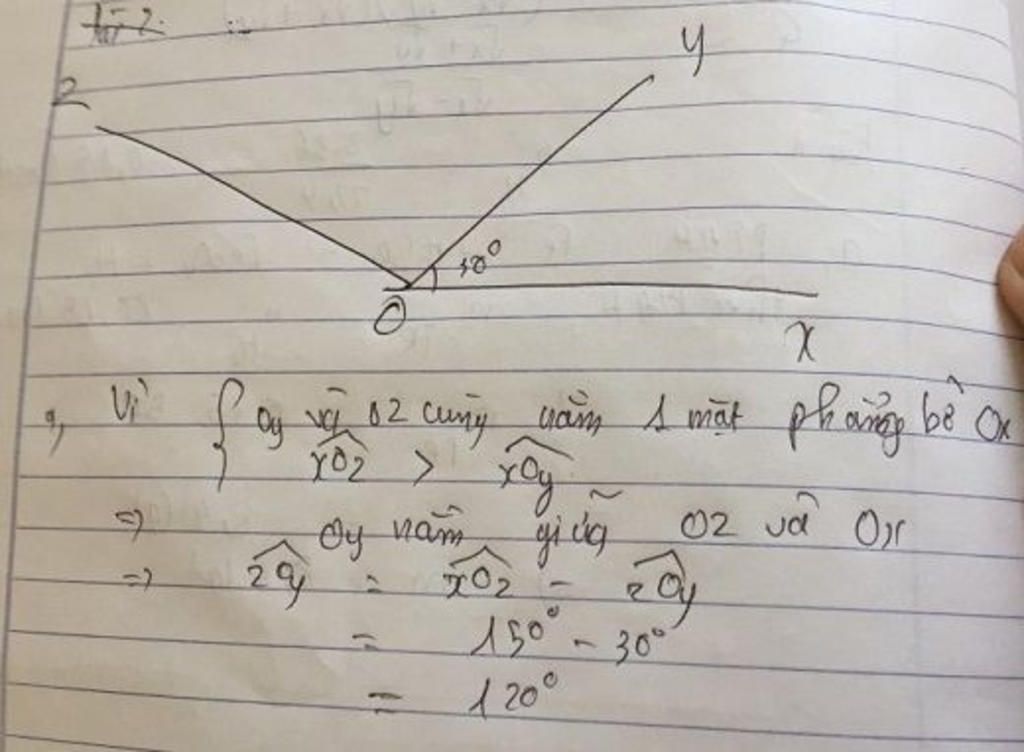 Z
y
30°
O
x
a, Vì { Oy và Oz cùng nằm 1 mặt phẳng bờ Ox
xOz > xOy
=> Oy nằm giữa Oz và Ox
=> zOy = xOz - zOy
= 150° - 30°
= 120°